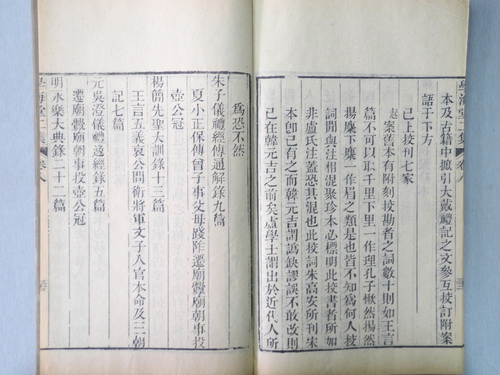 本及古籍中摭引大戴禮記之文參互挍訂附案
語于下方
已上挍刊七家
案舊本有附刻挍勘者之詞數十則如王言
篇不可以取千里下里一作理孔子愀然揚然
揚麋下麋一作眉之類是也皆不知爲何人挍
詞閒與注相混聚珍本必標明此挍書者所如
非盧氏注蓋恐其混也此挍詞朱高安所刊宋
本卽已有之而韓元吉謂譌缺謬誤不敢改則
已在韓元吉之前矣盧學士謂出於近代人所
爲恐不然
朱子儀禮經傳通解錄九篇
夏小正保傅曾子事父母踐阼遷廟釁廟朝事投
壺公冠
楊簡先聖大訓錄十三篇
王言五義哀公問衛將軍文子八官本命及三朝
記七篇
元吳澄儀禮逸經錄五篇
遷廟釁廟朝事投壺公冠
明永樂大典錄二十二篇